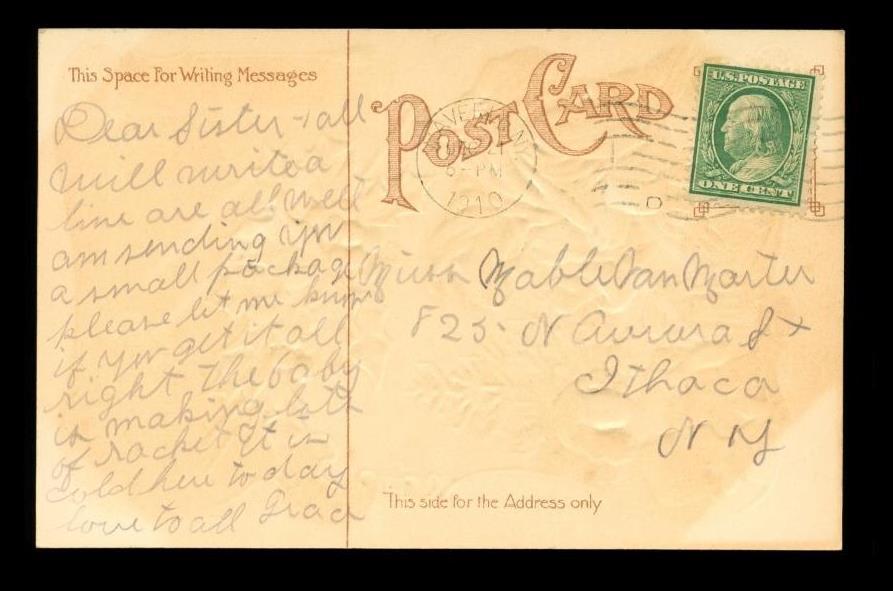 This Space For Writing Messages
Dear Sister + all
will write a
line are all well
am sending you
a small package
please let me know
if you get it all
right The baby
is making lots
of racket It is
cold here to day
love to all Grace
POST CARD
6-PM
1910
U.S. POSTAGE
ONE CENT
D
Miss Mable Van Marter
825 N Aurora St
Ithaca
N Y
This side for the Address only